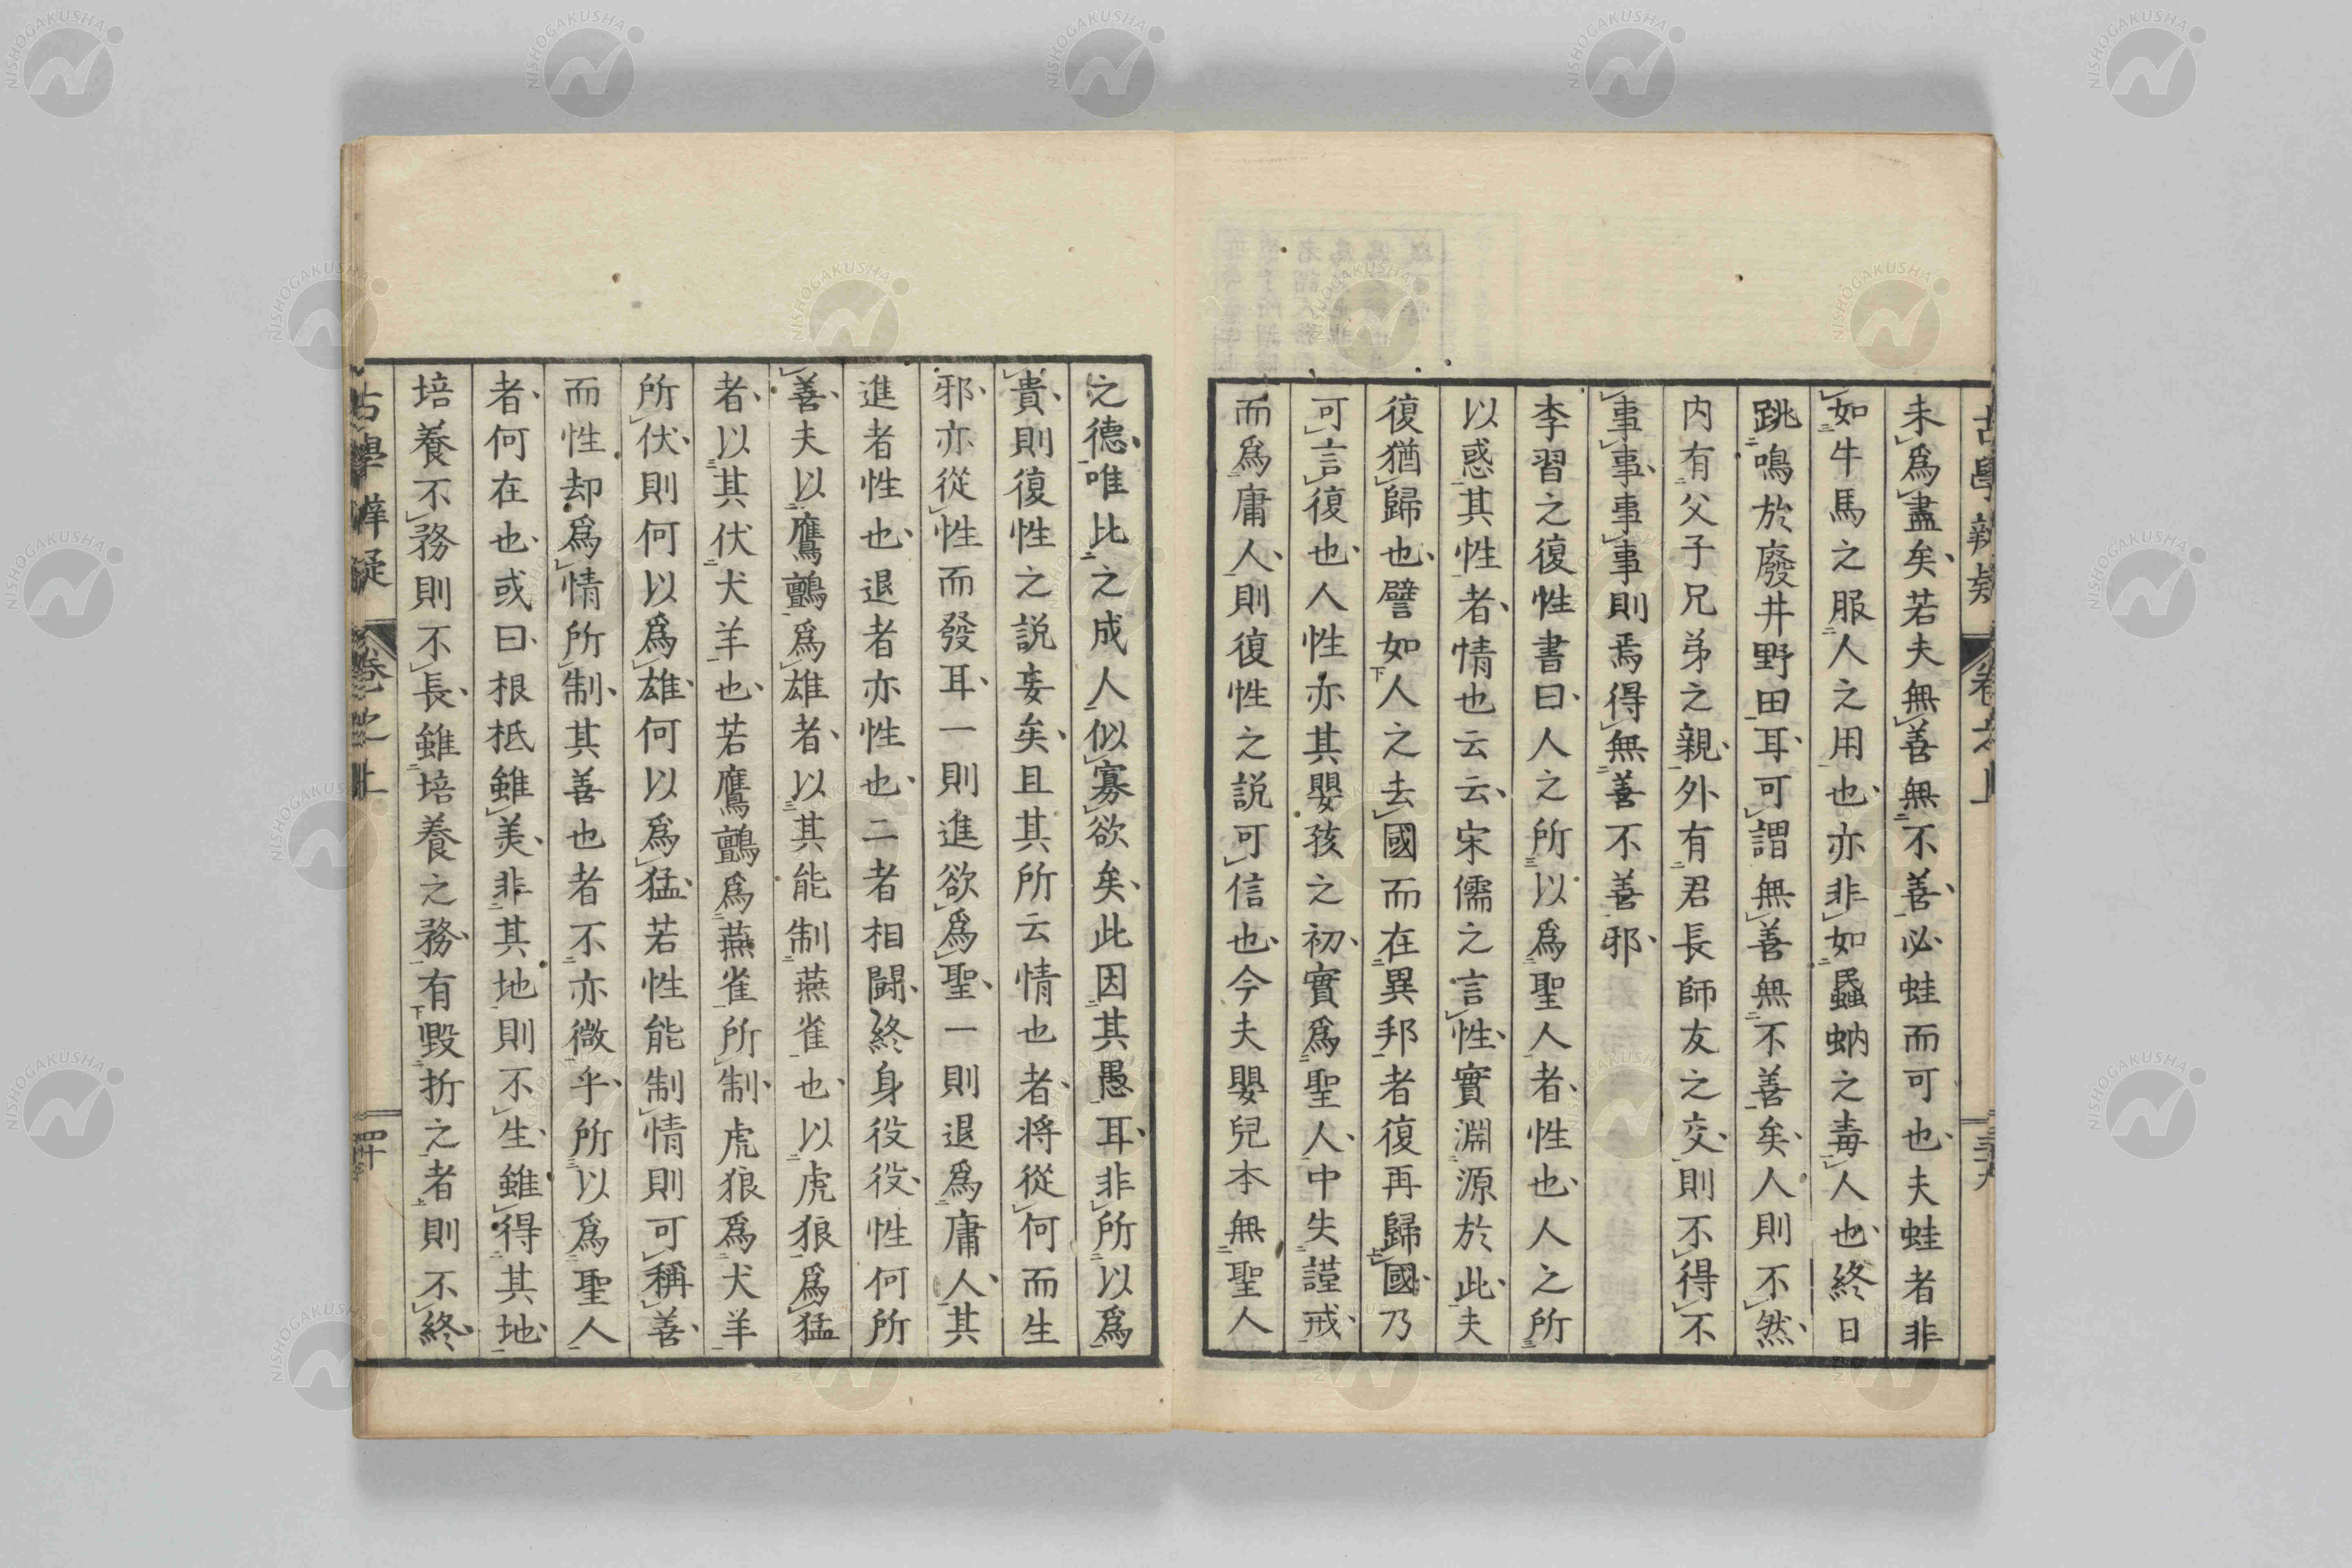 古學辨疑 卷之上 三十九
未爲盡矣若夫無善無不善必蛙而可也夫蛙者非
如牛馬之服人之用也亦非如蟁蚋之毒人也終日
跳鳴於廢井野田耳可謂無善無不善矣人則不然
内有父子兄弟之親外有君長師友之交則不得不
事事事事則焉得無善不善邪
李習之復性書曰人之所以爲聖人者性也人之所
以惑其性者情也云云宋儒之言性實淵源於此夫
復猶歸也譬如人之去國而在異邦者復再歸國乃
可言復也人性亦其嬰孩之初實爲聖人中失謹戒
而爲庸人則復性之説可信也今夫嬰兒本無聖人
之德唯比之成人似寡欲矣此因其愚耳非所以爲
貴則復性之説妄矣且其所云情也者將從何而生
邪亦從性而發耳一則進欲爲聖一則退爲庸人其
進者性也退者亦性也二者相鬪終身役役性何所
善夫以鷹鸇爲雄者以其能制燕雀也以虎狼爲猛
者以其伏犬羊也若鷹鸇爲燕雀所制虎狼爲犬羊
所伏則何以爲雄何以爲猛若性能制情則可稱善
而性却爲情所制其善也者不亦微乎所以爲聖人
者何在也或曰根柢雖美非其地則不生雖得其地
培養不務則不長雖培養之務有毀折之者則不終
古學辨疑 卷之上 四十
NISHOGAKUSHA